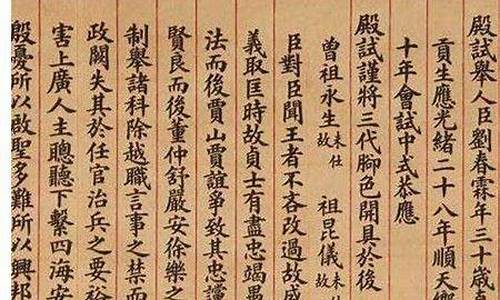 殿試舉人臣劉春霖年三十歲
貢生應光緒二十八年順天鄉
十年會試中式恭應
殿試謹將三代腳色開具於後
曾祖永生未仕故 祖昆儀未仕故
臣對臣聞王者不吝改過故盛
義取匡時故貞士有盡忠竭愚
法而後賈山賈誼弟致其忠讜
賢良而後董仲舒嚴安徐樂之
制舉諸科除越職言事之禁而
政闕失其於任官治兵之要裕
害上廣人主聰聽下繫四海安
殷憂所以啟聖多難所以興邦